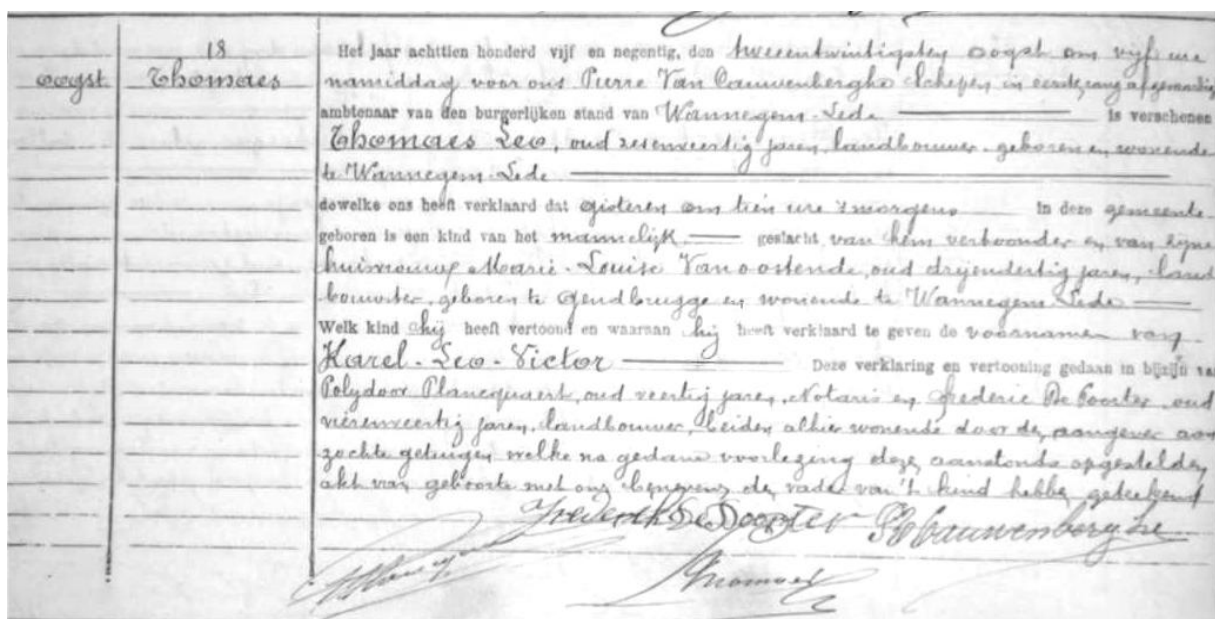 18
oogst
Thomaes
Het jaar achttien honderd vijf en negentig, den tweeentwintigsten oogst om vijf ure
namiddag voor ons Pierre Van Cauwenberghe Schepen in eersten rang afgevaardigd
ambtenaar van den burgerlijken stand van Wannegem-Lede is verschenen
Thomaes Leo, oud zesenveertig jaren, landbouwer geboren en wonende
te Wannegem-Lede
dewelke ons heeft verklaard dat gisteren om tien ure 's morgens in deze gemeente
geboren is een kind van het mannelijk geslacht van hem vertoonder en van zijne
huisvrouw Marie-Louise Vanoostende, oud drijendertig jaren, land
bouwster, geboren te Gendbrugge en wonende te Wannegem-Lede
Welk kind hij heeft vertoond en waaraan hij heeft verklaard te geven de voornamen van
Karel-Leo-Victor Deze verklaring en vertooning gedaan in bijzijn va
Polydoor Plancquaert, oud veertig jaren, Notaris en Frederic De Poorter oud
vierenveertig jaren, landbouwer, beiden alhier wonende door den aangever aan
zochte getuigen welke na gedane voorlezing dezer aanstonds opgestelden
akt van geboorte met ons benevens den vader van 't kind hebben geteekend
Frederick De Poorter PVCauwenberghe
Thomaes